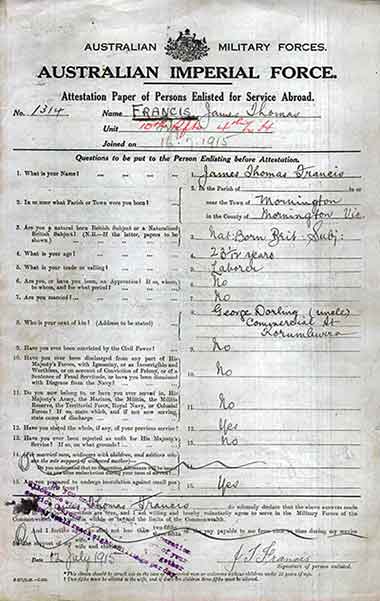 AUSTRALIAN MILITARY FORCES.
AUSTRALIAN IMPERIAL FORCE.
Attestation Paper of Persons Enlisted for Service Abroad.
No. 1314 Name FRANCIS James Thomas
Unit
Joined on 1915
Questions to be put to the Person Enlisting before Attestation.
1. What is your Name? 1. James Thomas Francis
2. In or near what Parish or Town were you born? 2. In the Parish of in or
near the Town of Mornington
in the County of Mornington Vic
3. Are you a natural born British Subject or a Naturalized
British Subject? (N.B.—If the latter, papers to be
shown.) 3. Nat. Born Brit. Subj:
4. What is your age? 4. years
5. What is your trade or calling? 5. Laborer
6. Are you, or have you been, an Apprentice? If so, where,
to whom, and for what period? 6. No
7. Are you married? 7. No
8. Who is your next of kin? (Address to be stated) 8. George Dorling (uncle)
Commercial St
Korumburra
9. Have you ever been convicted by the Civil Power? 9. No
10. Have you ever been discharged from any part of His
Majesty's Forces, with Ignominy, or as Incorrigible and
Worthless, or on account of Conviction of Felony, or of a
Sentence of Penal Servitude, or have you been dismissed
with Disgrace from the Navy? 10. No
11. Do you now belong to, or have you ever served in, His
Majesty's Army, the Marines, the Militia, the Militia
Reserve, the Territorial Force, Royal Navy, or Colonial
Forces? If so, state which, and if not now serving,
state cause of discharge 11. No
12. Have you stated the whole, if any, of your previous service? 12. Yes
13. Have you ever been rejected as unfit for His Majesty's
Service? If so, on what grounds? 13. No
14. (For married men, widowers with children, and soldiers who
are the sole support of widowed mother)—
Do you understand that no Separation Allowance will be
15. Are you prepared to undergo inoculation against small pox
15. Yes
James Thomas Francis do solemnly declare that the above answers made
by me to the above questions are true, and I am willing and hereby voluntarily agree to serve in the Military Forces of the
Commonwealth of Australia within or beyond the limits of the Commonwealth.
pay payable to me from time to time during my service
for the support of my wife and children
Date 12 July 1915
J T Francis
Signature of person enlisted.